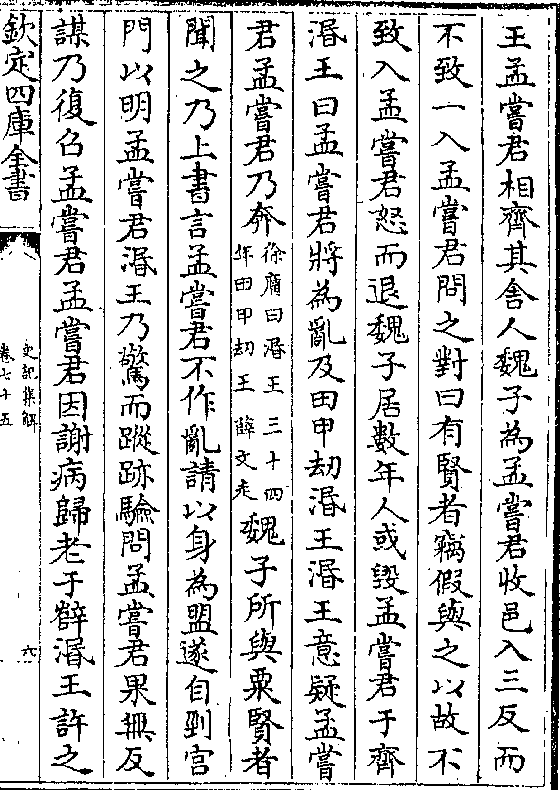 王孟嘗君相齊其舎人魏子為孟嘗君收邑入三反而
不致一入孟嘗君問之對曰有賢者竊假與之以故不
致入孟嘗君怒而退魏子居數年人或毀孟嘗君于齊
湣王曰孟嘗君將為亂及田甲劫湣王湣王意疑孟嘗
君孟嘗君乃奔徐廣曰湣王三十四年田甲劫王薛文走魏子所與粟賢者
聞之乃上書言孟嘗君不作亂請以身為盟遂自剄宫
門以明孟嘗君湣王乃驚而蹤跡驗問孟嘗君果無反
謀乃復召孟嘗君孟嘗君因謝病歸老于薛湣王許之
欽定四庫全書
史記集解
卷七十五
六